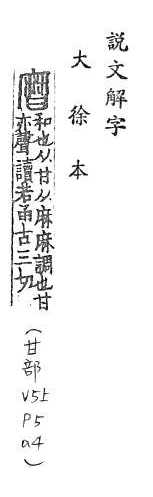 説文解字
大徐本
和也从甘从麻麻調也甘
亦聲讀若函古三切
(甘部
V5上
P5
a4)